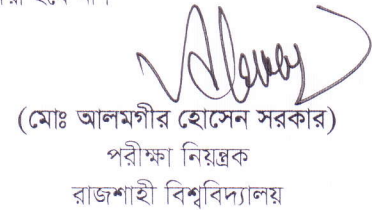 (মোঃ আলমগীর হোসেন সরকার)
পরীক্ষা নিয়ন্ত্রক
রাজশাহী বিশ্ববিদ্যালয়